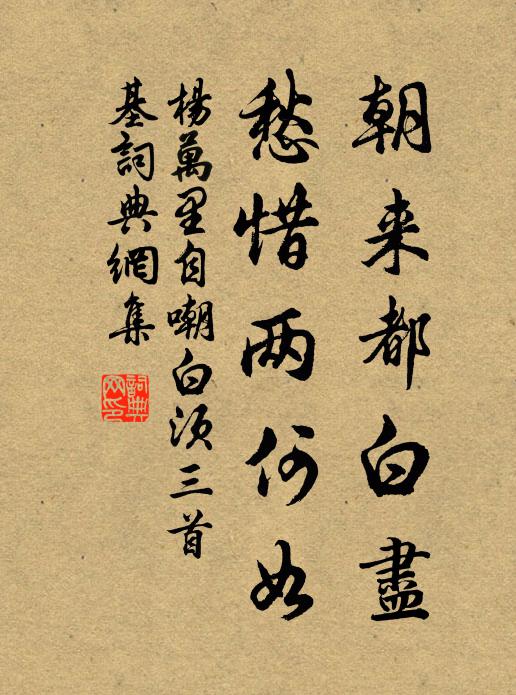 朝来都白盡
愁惜两何如
楊萬里自嘲白须三首
基詞典網集
詞典網印